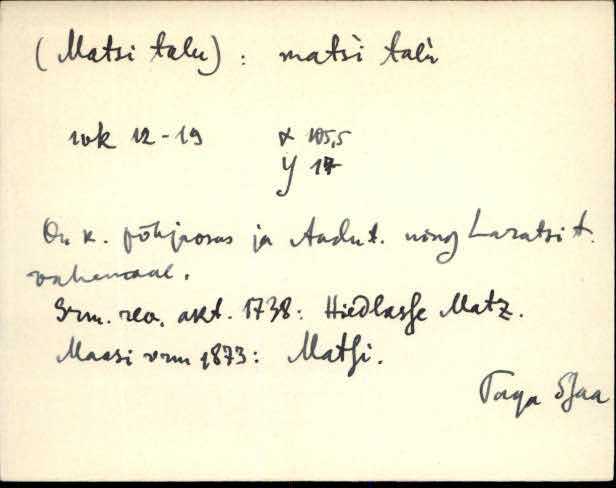 (Matsi talu): matsì talù
wk 12-19 x 105,5
y 17
On k. põhjaosas ja Aadu t. ning Laratsi t.
vahemaal.
Srm. rev. akt. 1738: Hiedlasse Matz.
Maasi vrm 1873: Matsi.
Taga